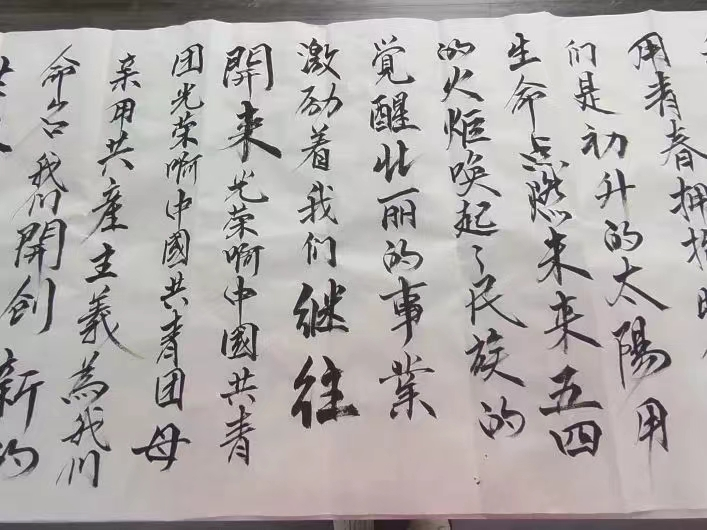 用青春拥抱时
们是初升的太陽用
生命点燃未来五四
的火炬唤起了民族的
覚醒壮丽的事業
激励着我们继往
開来光荣啊中國共青
团光荣啊中國共青团母
亲用共產主義為我们
命名我们開創新的